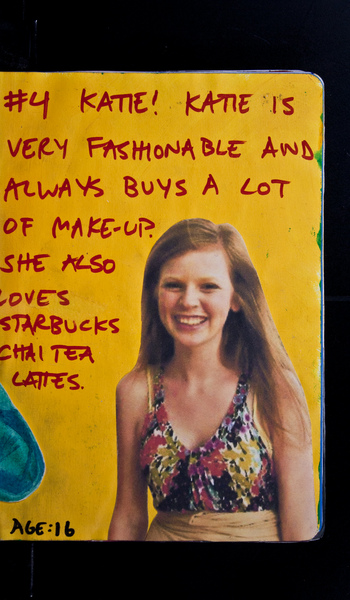 #4 KATIE! KATIE IS
VERY FASHIONABLE AND
ALWAYS BUYS A LOT
OF MAKE-UP?
SHE ALSO
LOVES
STARBUCKS
CHAI TEA
LATTES.
AGE:16